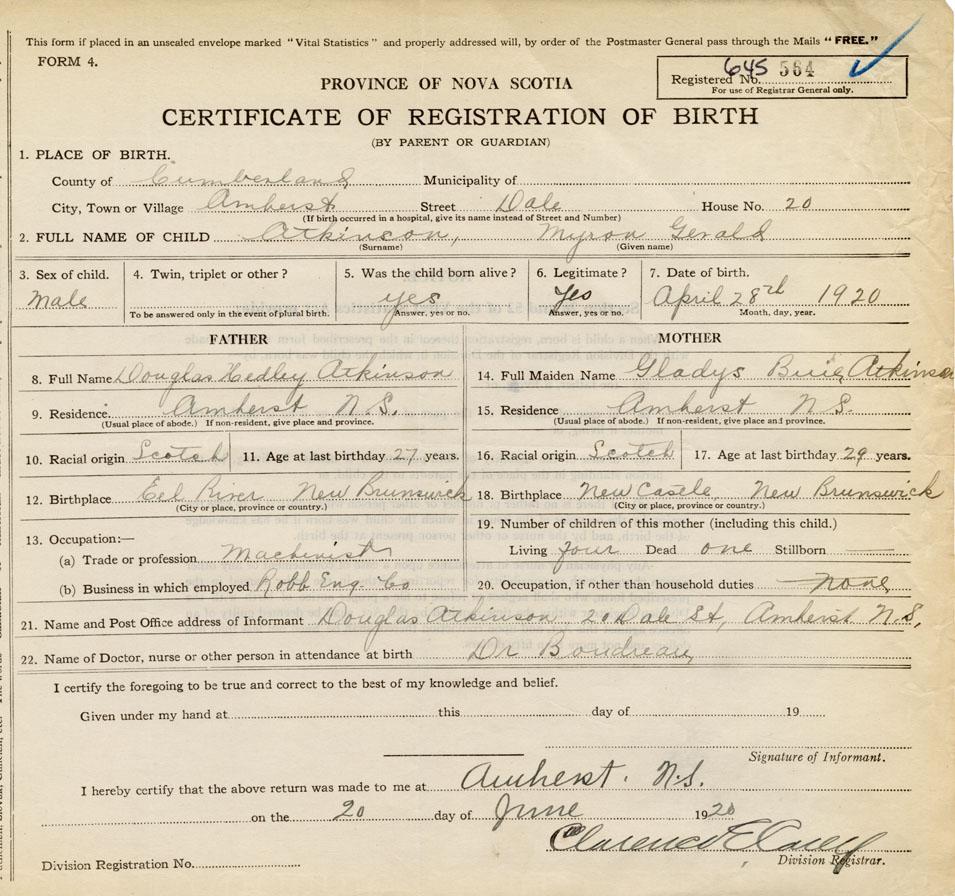 This form if placed in an unsealed envelope marked "Vital Statistics" and properly addressed will, by order of the Postmaster General pass through the Mails "FREE."
FORM 4.
645 564
Registered No.
For use of Registrar General only.
PROVINCE OF NOVA SCOTIA
CERTIFICATE OF REGISTRATION OF BIRTH
(BY PARENT OR GUARDIAN)
1. PLACE OF BIRTH.
County of Cumberland Municipality of
City, Town or Village Amherst Street Dale House No. 20
(If birth occurred in a hospital, give its name instead of Street and Number)
2. FULL NAME OF CHILD Atkinson, Myron Gerald
(Surname) (Given name)
3. Sex of child. 4. Twin, triplet or other? 5. Was the child born alive? 6. Legitimate? 7. Date of birth.
Male yes Yes April 28th 1920
To be answered only in the event of plural birth. Answer, yes or no. Answer, yes or no. Month, day, year.
FATHER MOTHER
8. Full Name Douglas Hedley Atkinson 14. Full Maiden Name Gladys Atkinson
9. Residence. Amherst N.S. 15. Residence Amherst N.S.
(Usual place of abode.) If non-resident, give place and province. (Usual place of abode.) If non-resident, give place and province.
10. Racial origin Scotch 11. Age at last birthday 27 years. 16. Racial origin Scotch 17. Age at last birthday 29 years.
12. Birthplace Eel River New Brunswick 18. Birthplace New Castle, New Brunswick
(City or place, province or country.) (City or place, province or country.)
13. Occupation:— 19. Number of children of this mother (including this child.)
(a) Trade or profession Machinist Living four Dead one Stillborn —
(b) Business in which employed Robb Eng. Co 20. Occupation, if other than household duties none
21. Name and Post Office address of Informant Douglas Atkinson 20 Dale St, Amherst N.S,
22. Name of Doctor, nurse or other person in attendance at birth Dr Boudreau
I certify the foregoing to be true and correct to the best of my knowledge and belief.
Given under my hand at this day of 19
Signature of Informant.
I hereby certify that the above return was made to me at Amherst. N.S.
on the 20 day of June 1920
Clarence E. Casey
Division Registration No. Division Registrar.